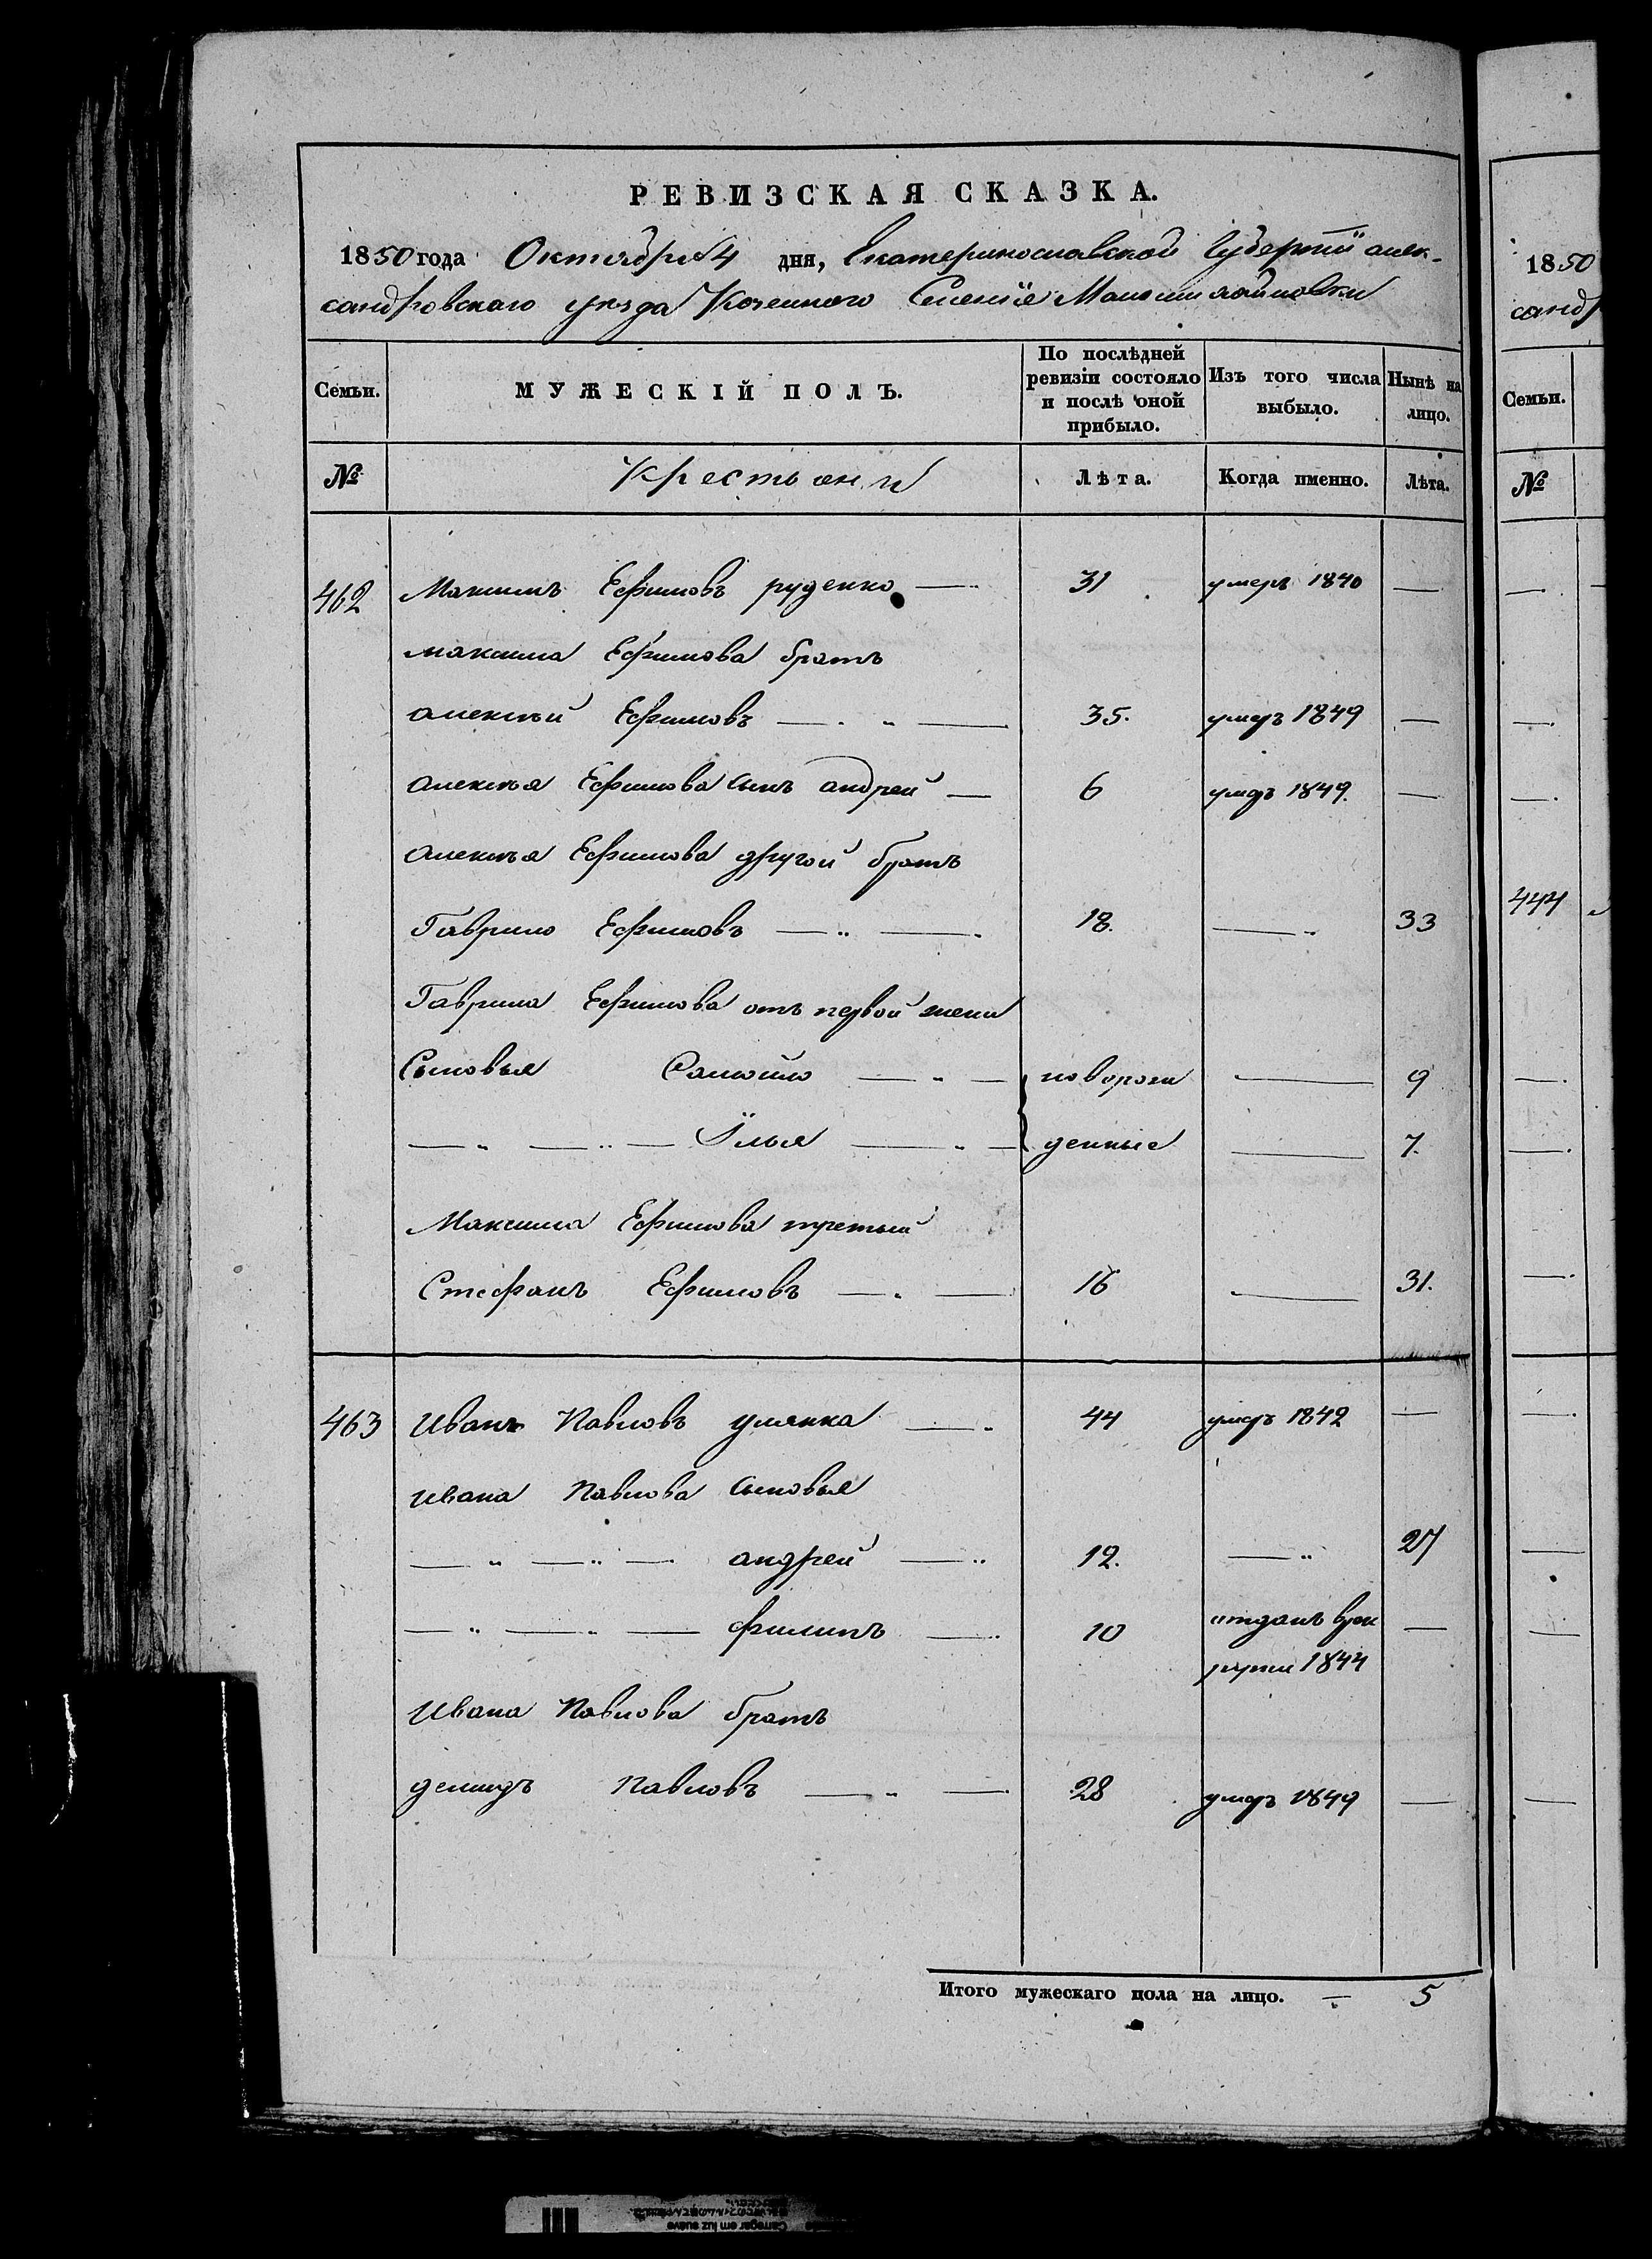 РЕВИЗСКАЯ СКАЗКА.
1850 года Октября 4 дня, Екатеринославской Губерніи алек-
сандровскаго уѣзда Козенного Селенія
Семьи.
МУЖЕСКІЙ ПОЛЪ.
По послѣдней ревизіи состояло и послѣ оной прибыло.
Изъ того числа выбыло.
Нынѣ на лицо.
№
Крестьяни
Лѣта.
Когда именно.
Лѣта.
462 Максимъ Ефимовъ руденко — 31 умеръ 1840 —
максима Ефимова братъ
алексѣй Ефимовъ — „ — 35. умеръ 1849 —
алексѣя Ефимова сынъ андрей — 6 умеръ 1849. —
алексѣя Ефимова другой братъ
Гаврило Ефимовъ — „ — 18. — „ 33
Гаврила Ефимова отъ первой жени
Сыновья Самойло — „ — новорож — 9
— „ — „ — Илья — „ — денные — 7.
Максима Ефимова третьий
Стефанъ Ефимовъ — „ — 16 — 31.
463 Иванъ Павловъ улянка — „ 44 умеръ 1842 —
ивана Павлова сыновья
— „ — „ — андрей — „ 12. — „ 27
— „ — „ — филипъ — „ 10 отданъ врек
рути 1844 —
Ивана Павлова братъ
демидъ Павловъ — „ — 28 умеръ 1849 —
Итого мужескаго пола на лицо. — 5
1850
санд
Семьи.
№
444